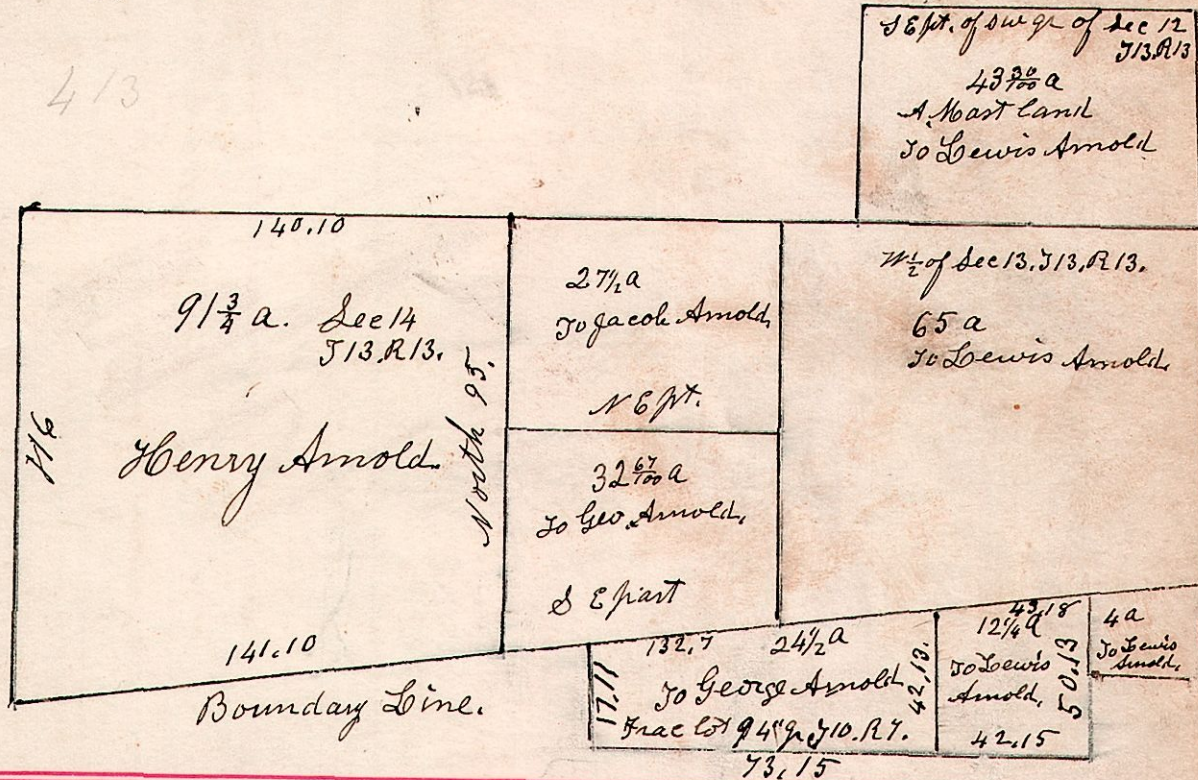 413
S E pt. of sw qr of Sec 12
T13.R13
43 30/100 a
A. Mast land
To Lewis Arnold
140.10
91 3/4 a. Sec 14
T13.R13.
Henry Arnold.
116
North 95.
141.10
Boundary Line.
27 1/2 a
To Jacob Arnold
N E pt.
32 67/100 a
To Geo. Arnold.
S E part
W 1/2 of Sec 13. T13. R13.
65 a
To Lewis Arnold
132,7 24 1/2 a
17.11
To George Arnold
42,13.
Frac lot 9 4" qr T10. R7.
73,15
43,18
12 1/4 a
To Lewis
Arnold.
50,13
42,15
4 a
To Lewis
Arnold.